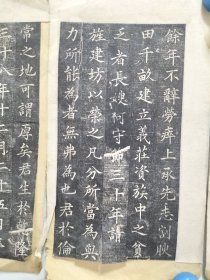 餘年不辭勞瘁上承先志割腴
田千畝建立義莊資族中之貧
乏者長嫂何守節三十年請
旌建坊以榮之凡分所當為與
力所能為者無弗為也君於倫
常之地可謂厚矣君生於隆
三十八年十二月二十五日